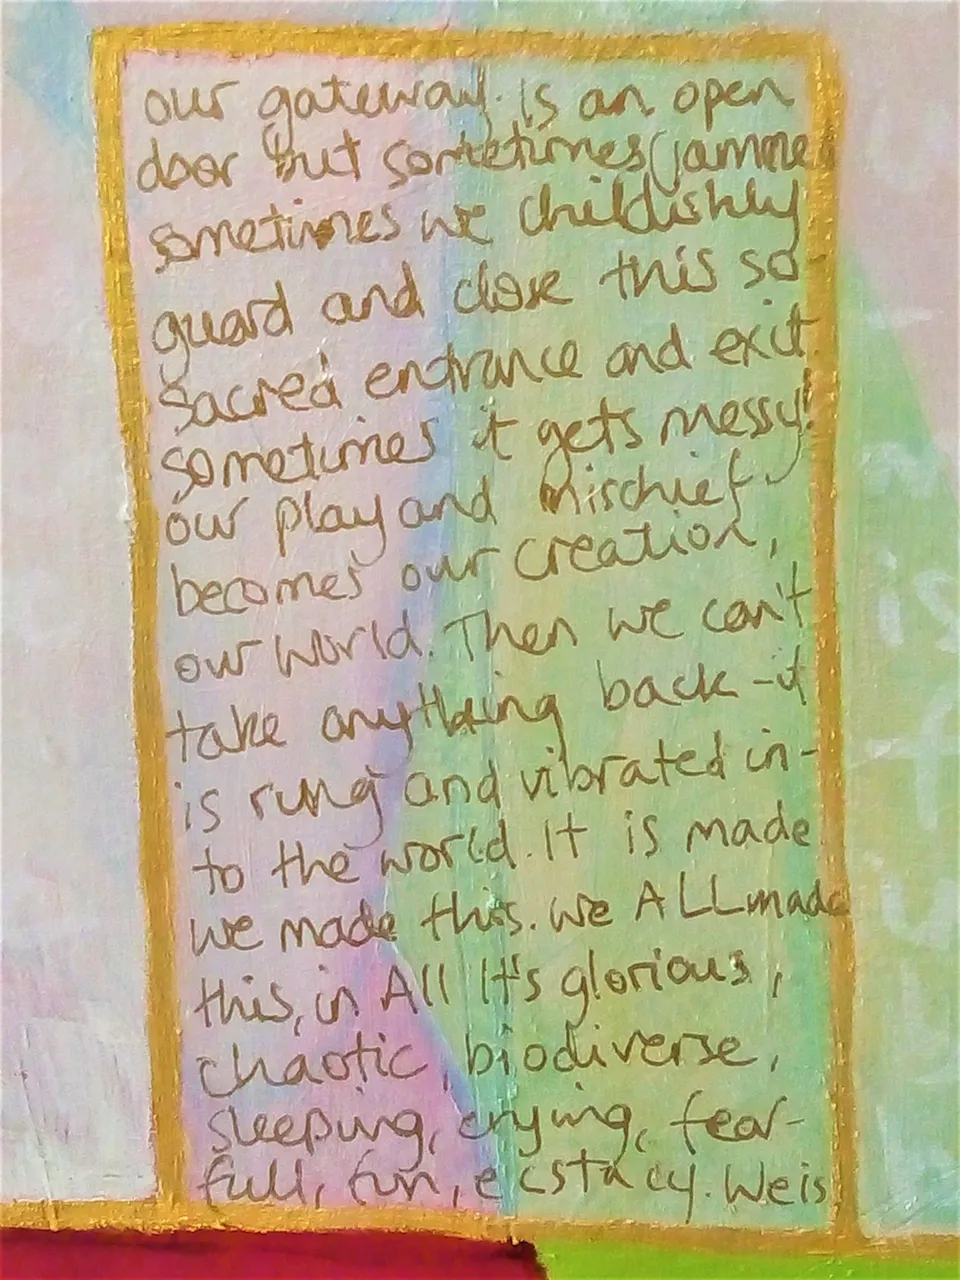 our gateway is an open
door but sometimes (jamme
sometimes we childishly
guard and close this so-
sacred entrance and exit.
sometimes it gets messy!
our play and mischief
becomes our creation,
our world. Then we can't
take anything back - it
is rung and vibrated in-
to the world. It is made
we made this. we ALL made
this, in All It's glorious,
chaotic, biodiverse,
sleeping, crying, fear-
full, fun, ecstacy. We is